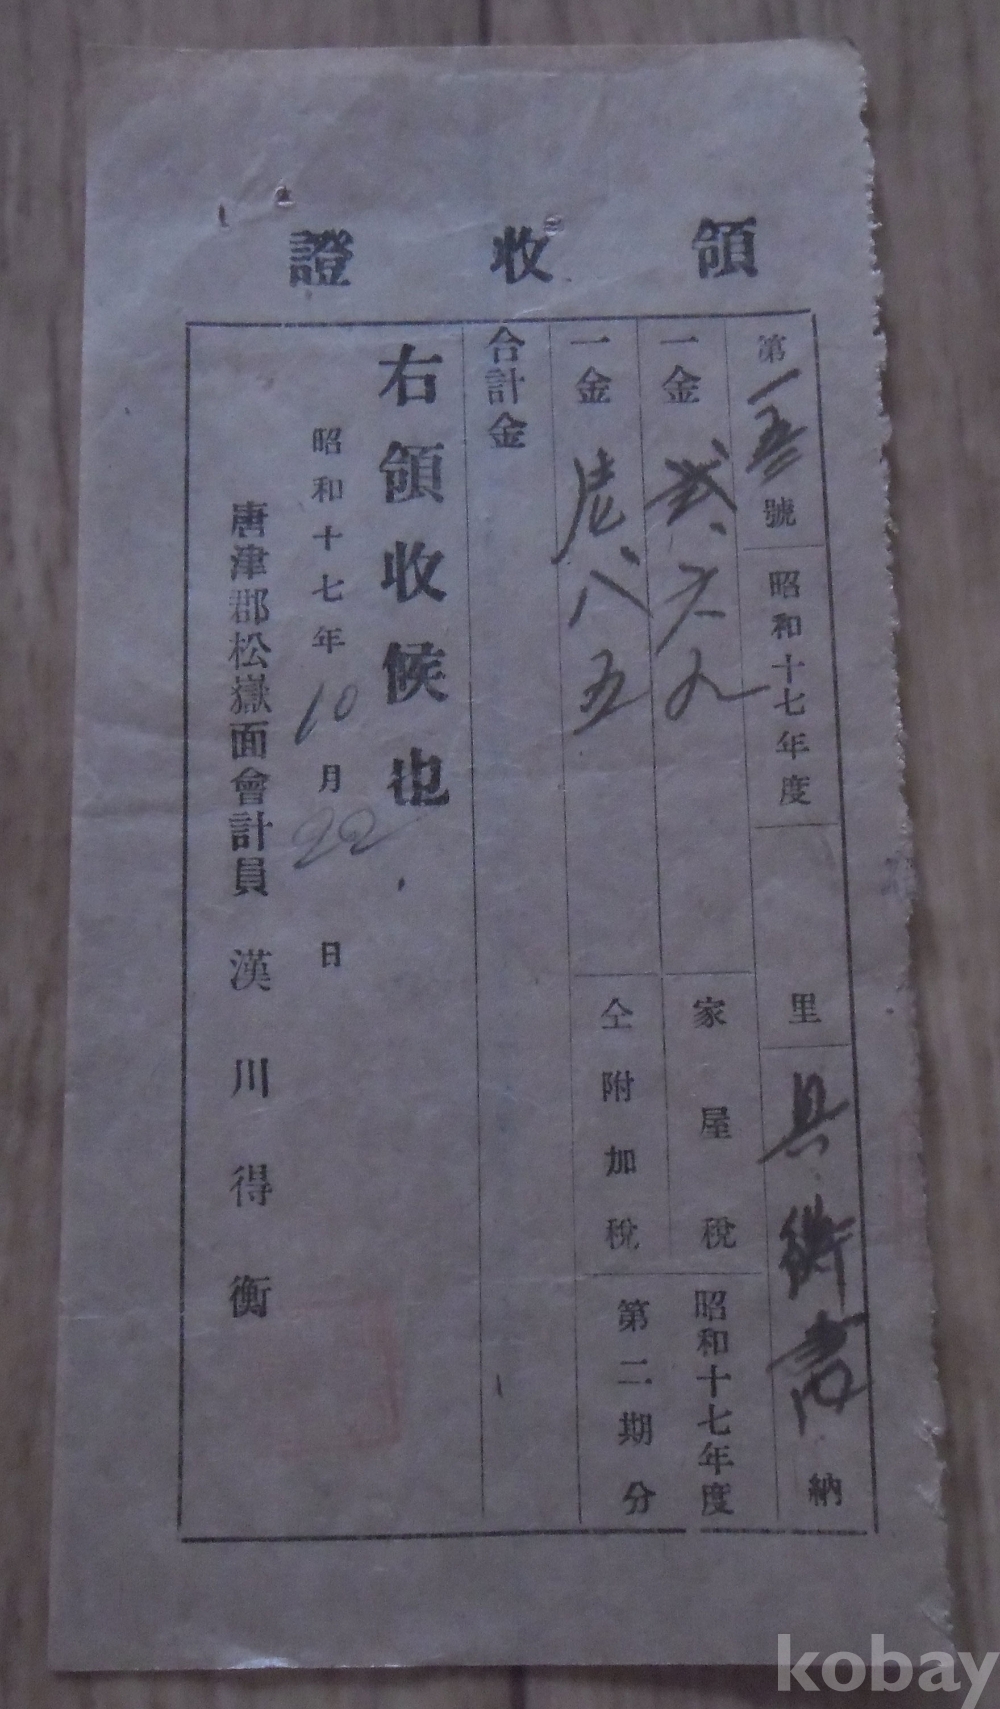 領收證
第一五號 昭和十七年度 里 具衡書 納
一金 貳、六九 家屋稅 昭和十七年度
一金 壱、八五 仝附加稅 第二期分
合計金
右領收候也
昭和十七年10月22日
唐津郡松嶽面會計員 漢川得衡
kobay